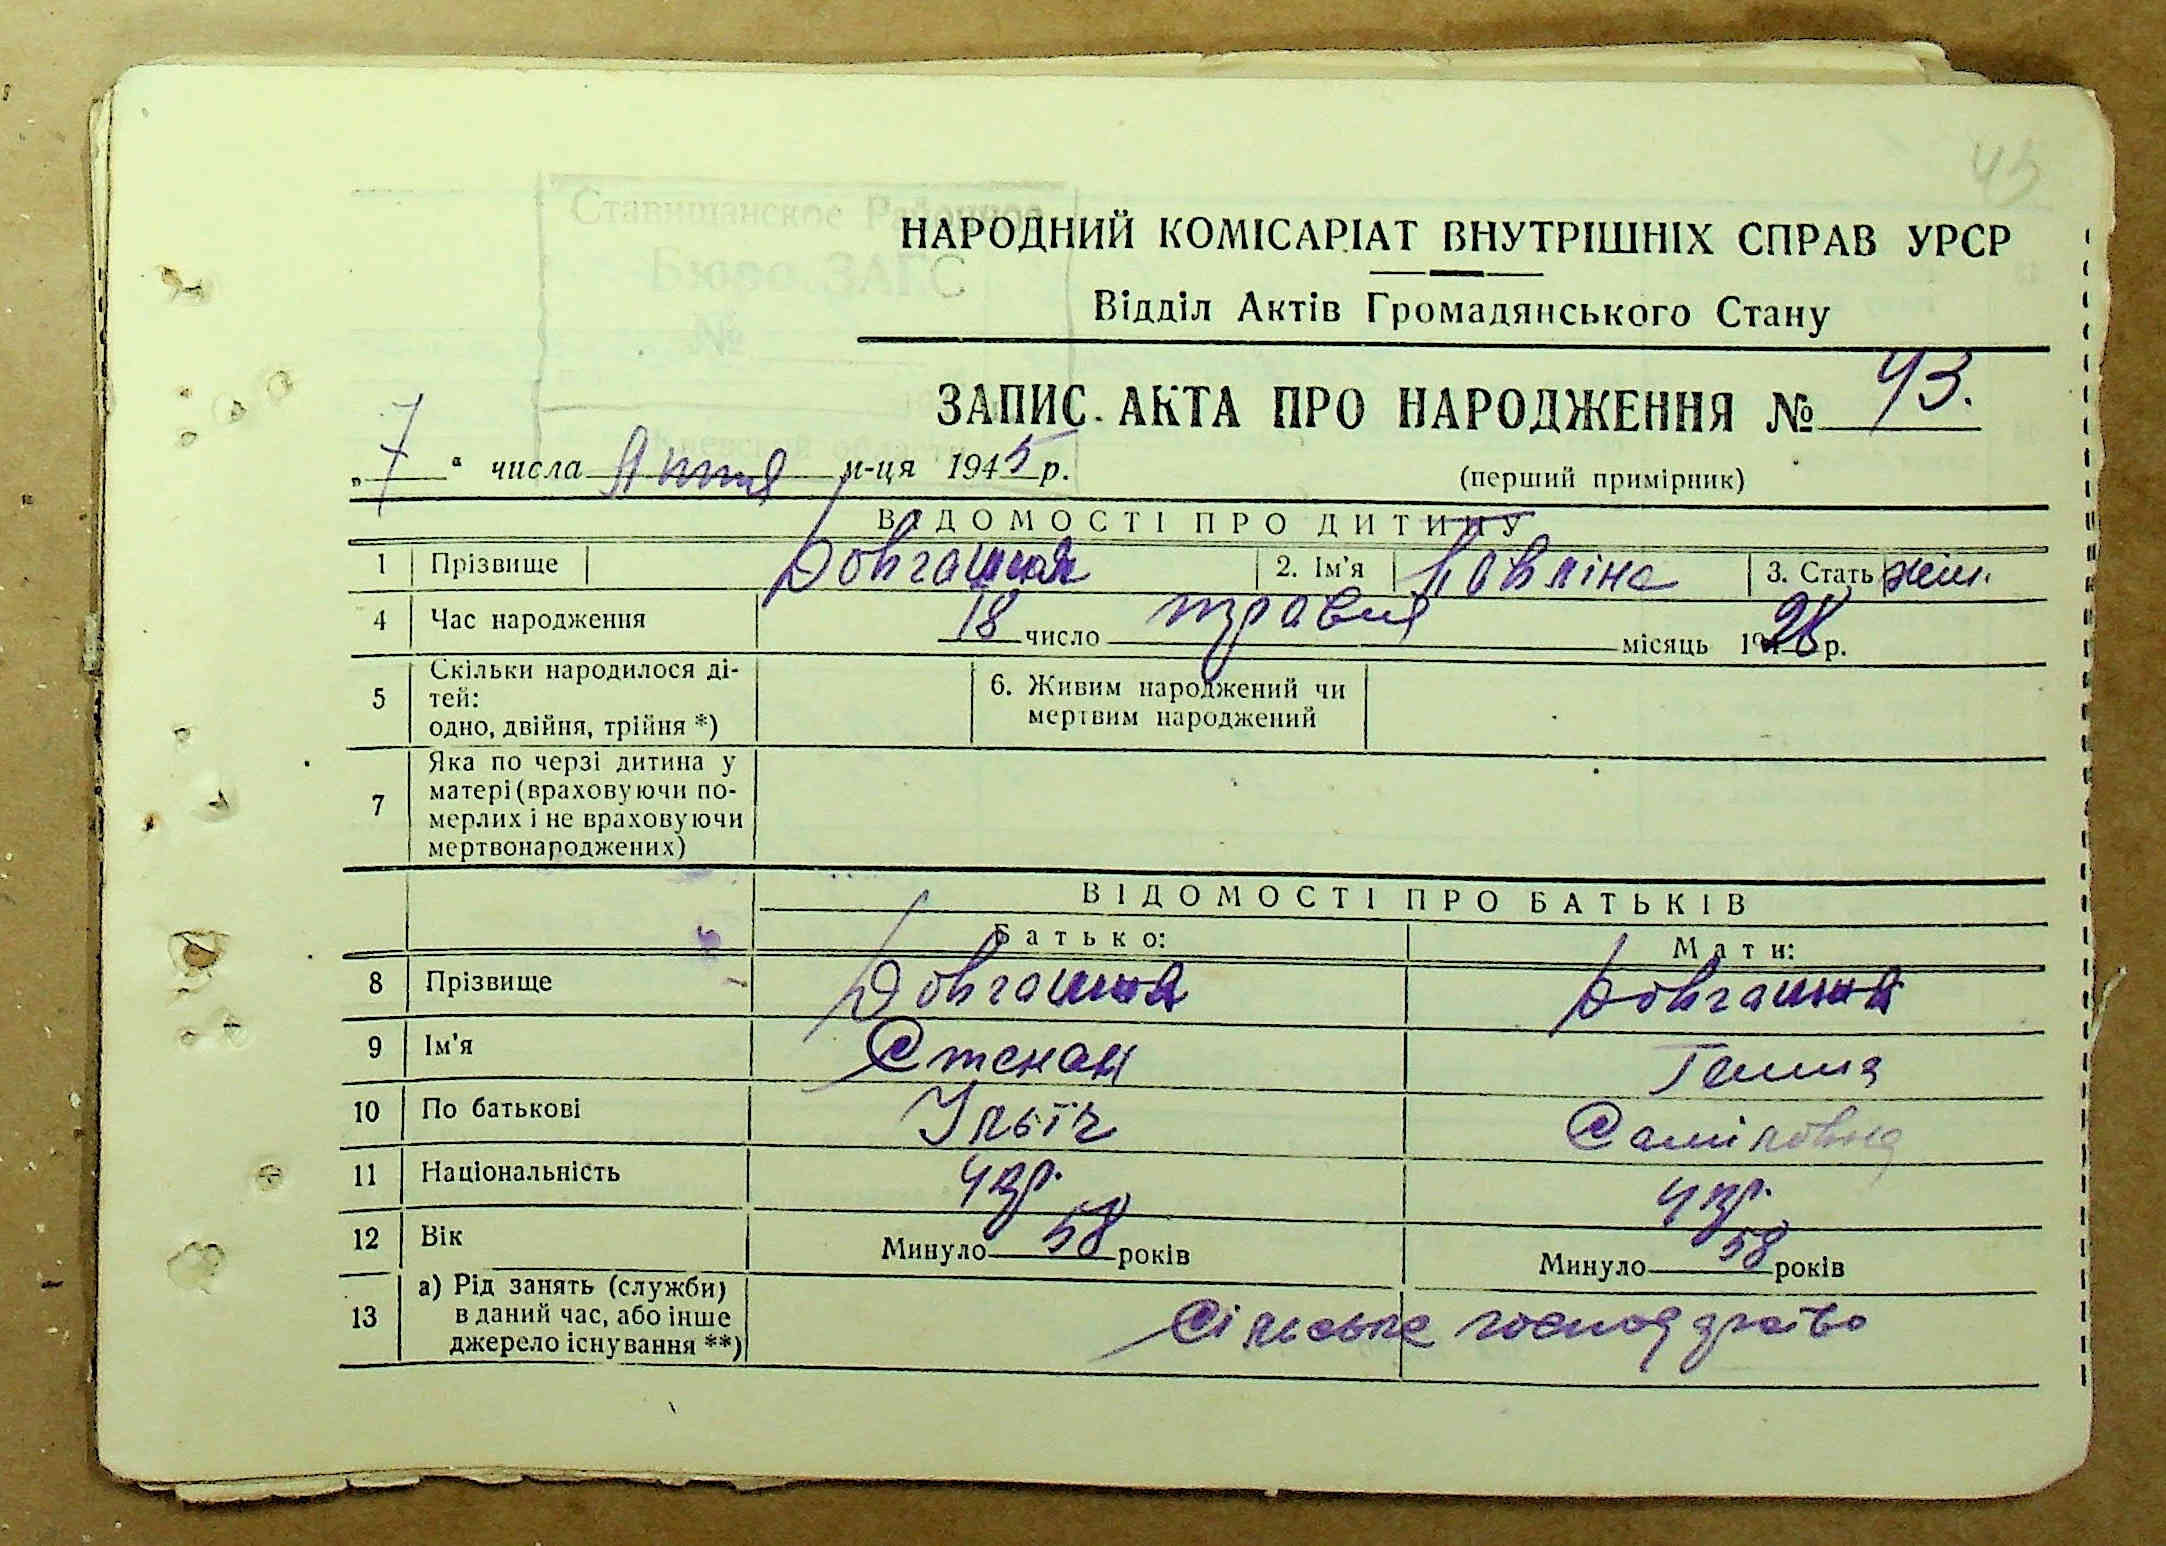 43
Ставищанское Районное
Бюро ЗАГС
№
НАРОДНИЙ КОМІСАРІАТ ВНУТРІШНІХ СПРАВ УРСР
Відділ Актів Громадянського Стану
ЗАПИС АКТА ПРО НАРОДЖЕННЯ № 43.
„7“ числа липня м-ця 1945 р. (перший примірник)
ВІДОМОСТІ ПРО ДИТИНУ
1 Прізвище Довгашия 2. Ім'я Павліна 3. Стать жін.
4 Час народження 18 число травня місяць 1928 р.
5 Скільки народилося ді-
тей:
одно, двійня, трійня *)
6. Живим народжений чи
мертвим народжений
7 Яка по черзі дитина у
матері (враховуючи по-
мерлих і не враховуючи
мертвонароджених)
ВІДОМОСТІ ПРО БАТЬКІВ
Батько: Мати:
8 Прізвище
9 Ім'я Степан Ганна
10 По батькові Ільїч Саміловна
11 Національність укр. укр.
12 Вік Минуло 58 років Минуло 58 років
13 а) Рід занять (служби)
в даний час, або інше
джерело існування **)
Сільське господарство